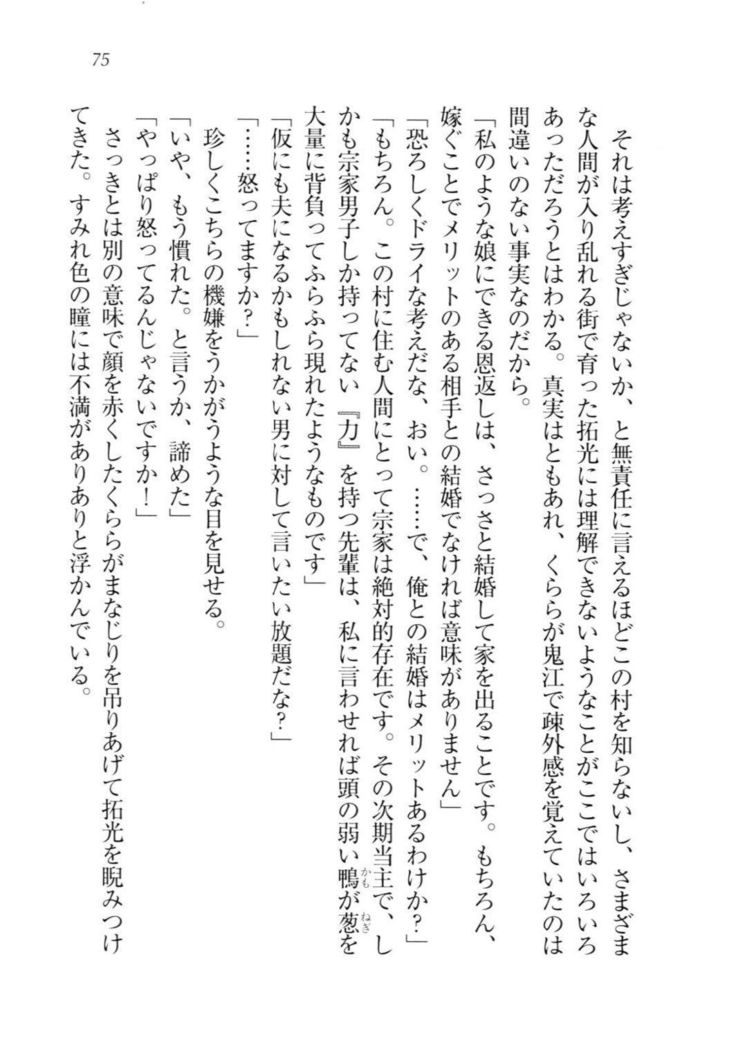 75
それは考えすぎじゃないか、と無責任に言えるほどこの村を知らないし、さまざま
な人間が入り乱れる街で育った拓光には理解できないようなことがここではいろいろ
あっただろうとはわかる。真実はともあれ、くららが鬼江で疎外感を覚えていたのは
間違いのない事実なのだから。
「私のような娘にできる恩返しは、さっさと結婚して家を出ることです。もちろん、
嫁ぐことでメリットのある相手との結婚でなければ意味がありません」
「恐ろしくドライな考えだな、おい。……で、俺との結婚はメリットあるわけか？」
「もちろん。この村に住む人間にとって宗家は絶対的存在です。その次期当主で、し
かも宗家男子しか持ってない『力』を持つ先輩は、私に言わせれば頭の弱い鴨が葱を
かも
ねぎ
大量に背負ってふらふら現れたようなものです」
「仮にも夫になるかもしれない男に対して言いたい放題だな？」
「……怒ってますか？」
珍しくこちらの機嫌をうかがうような目を見せる。
「いや、もう慣れた。と言うか、諦めた」
「やっぱり怒ってるんじゃないですか！」
さっきとは別の意味で顔を赤くしたくららがまなじりを吊りあげて拓光を睨みつけ
てきた。すみれ色の瞳には不満がありありと浮かんでいる。